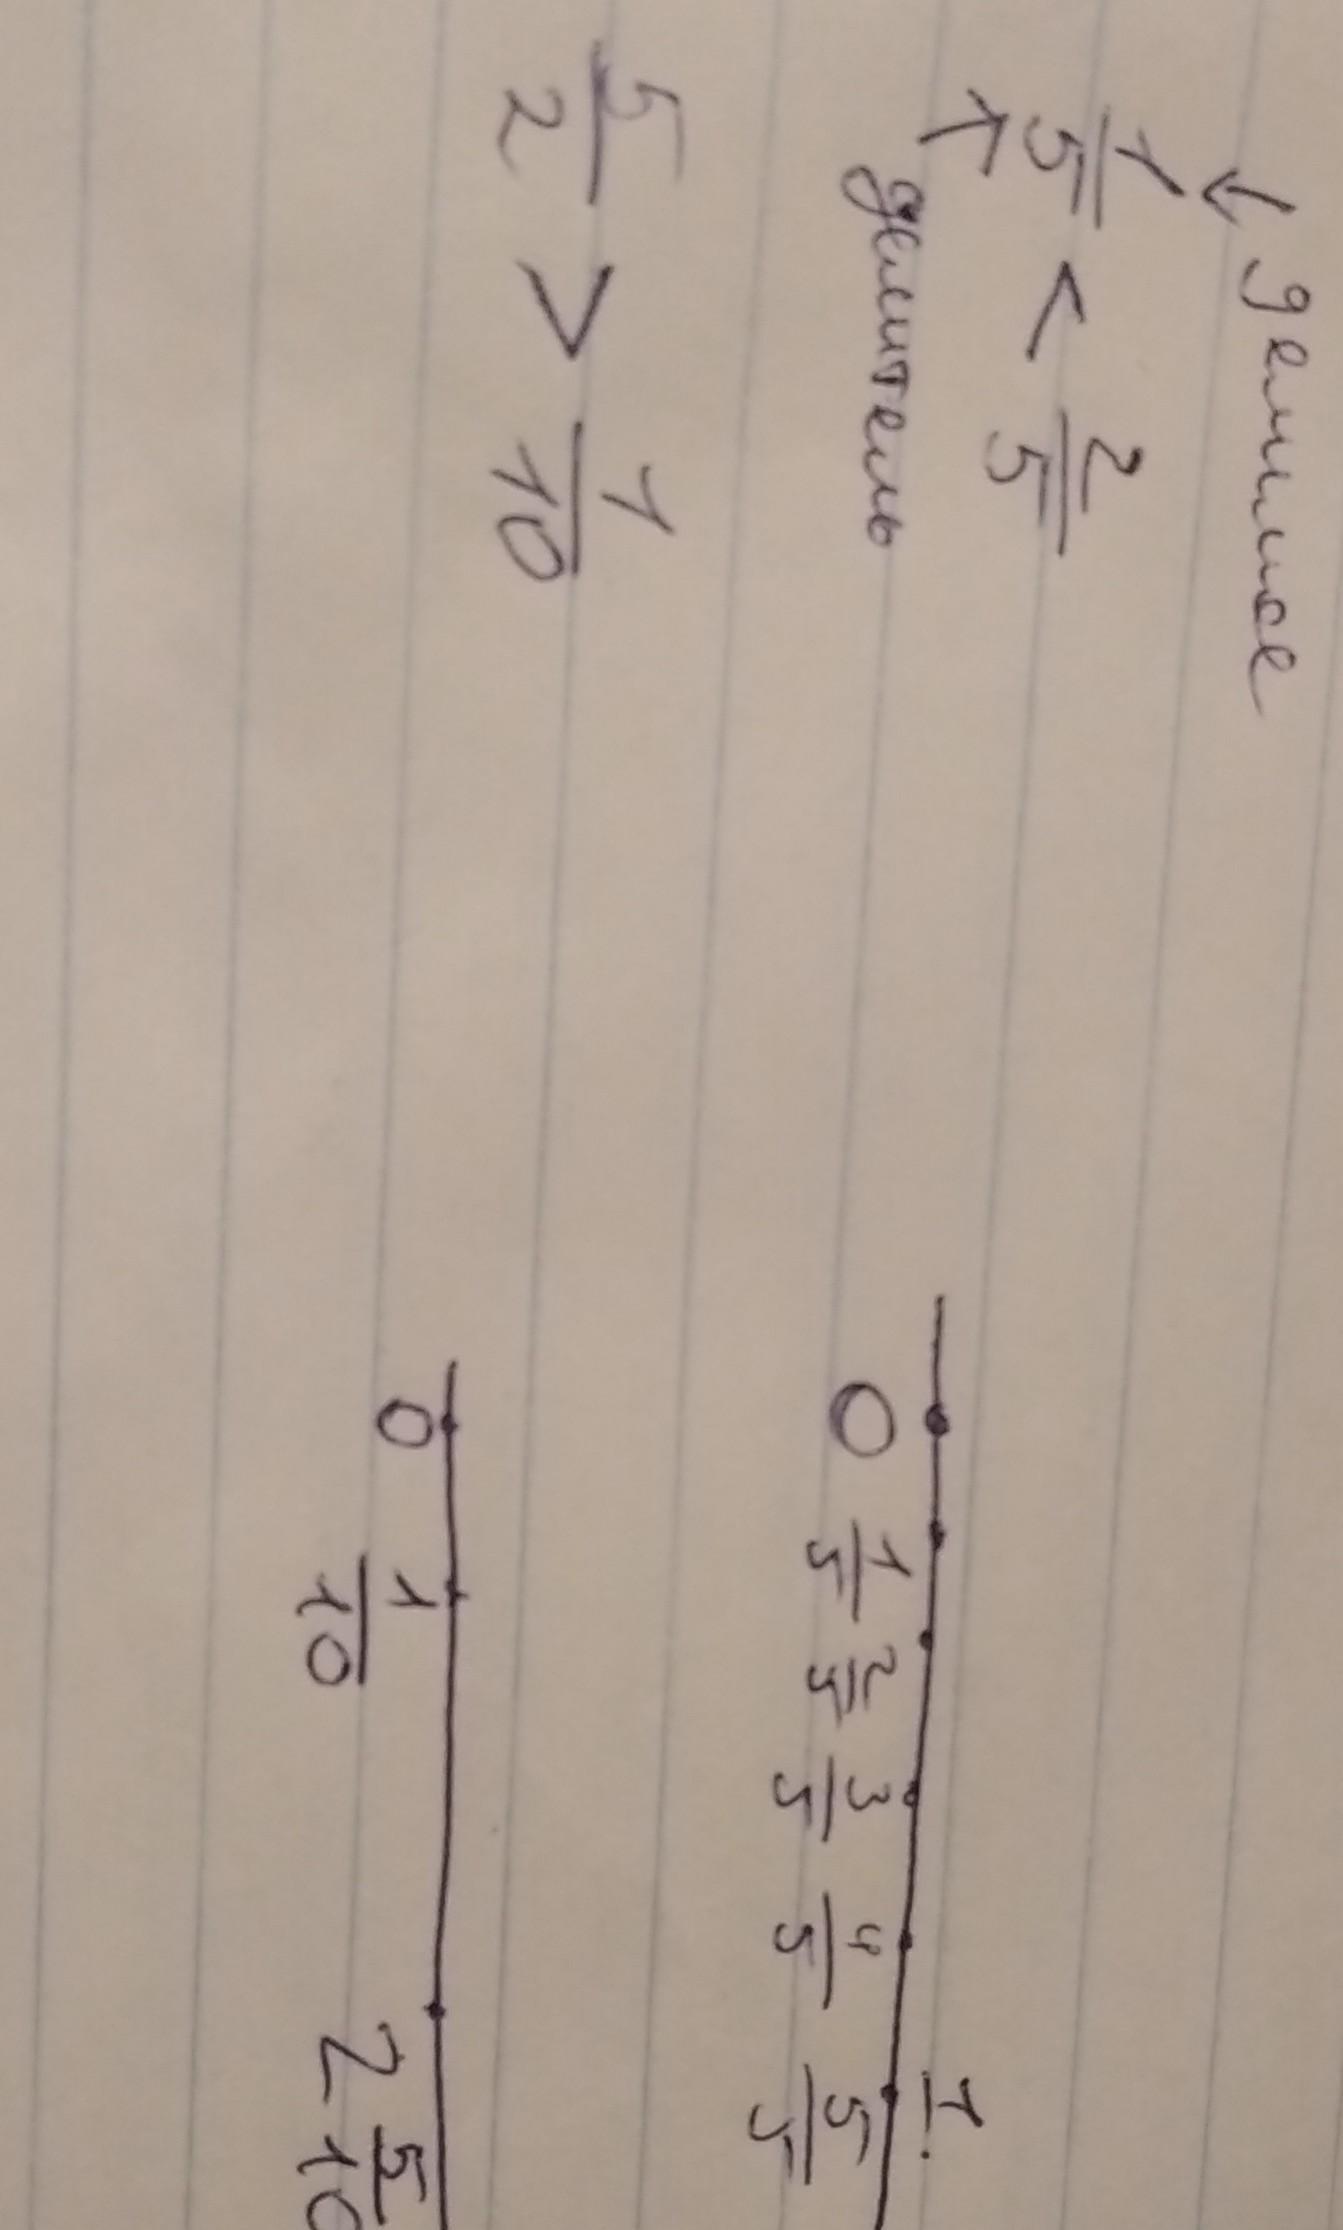 ↓ делимое
1/5 < 2/5
↑ делитель
1.
0 1/5 2/5 3/5 4/5 5/5
5/2 > 1/10
0 1/10 2 5/10